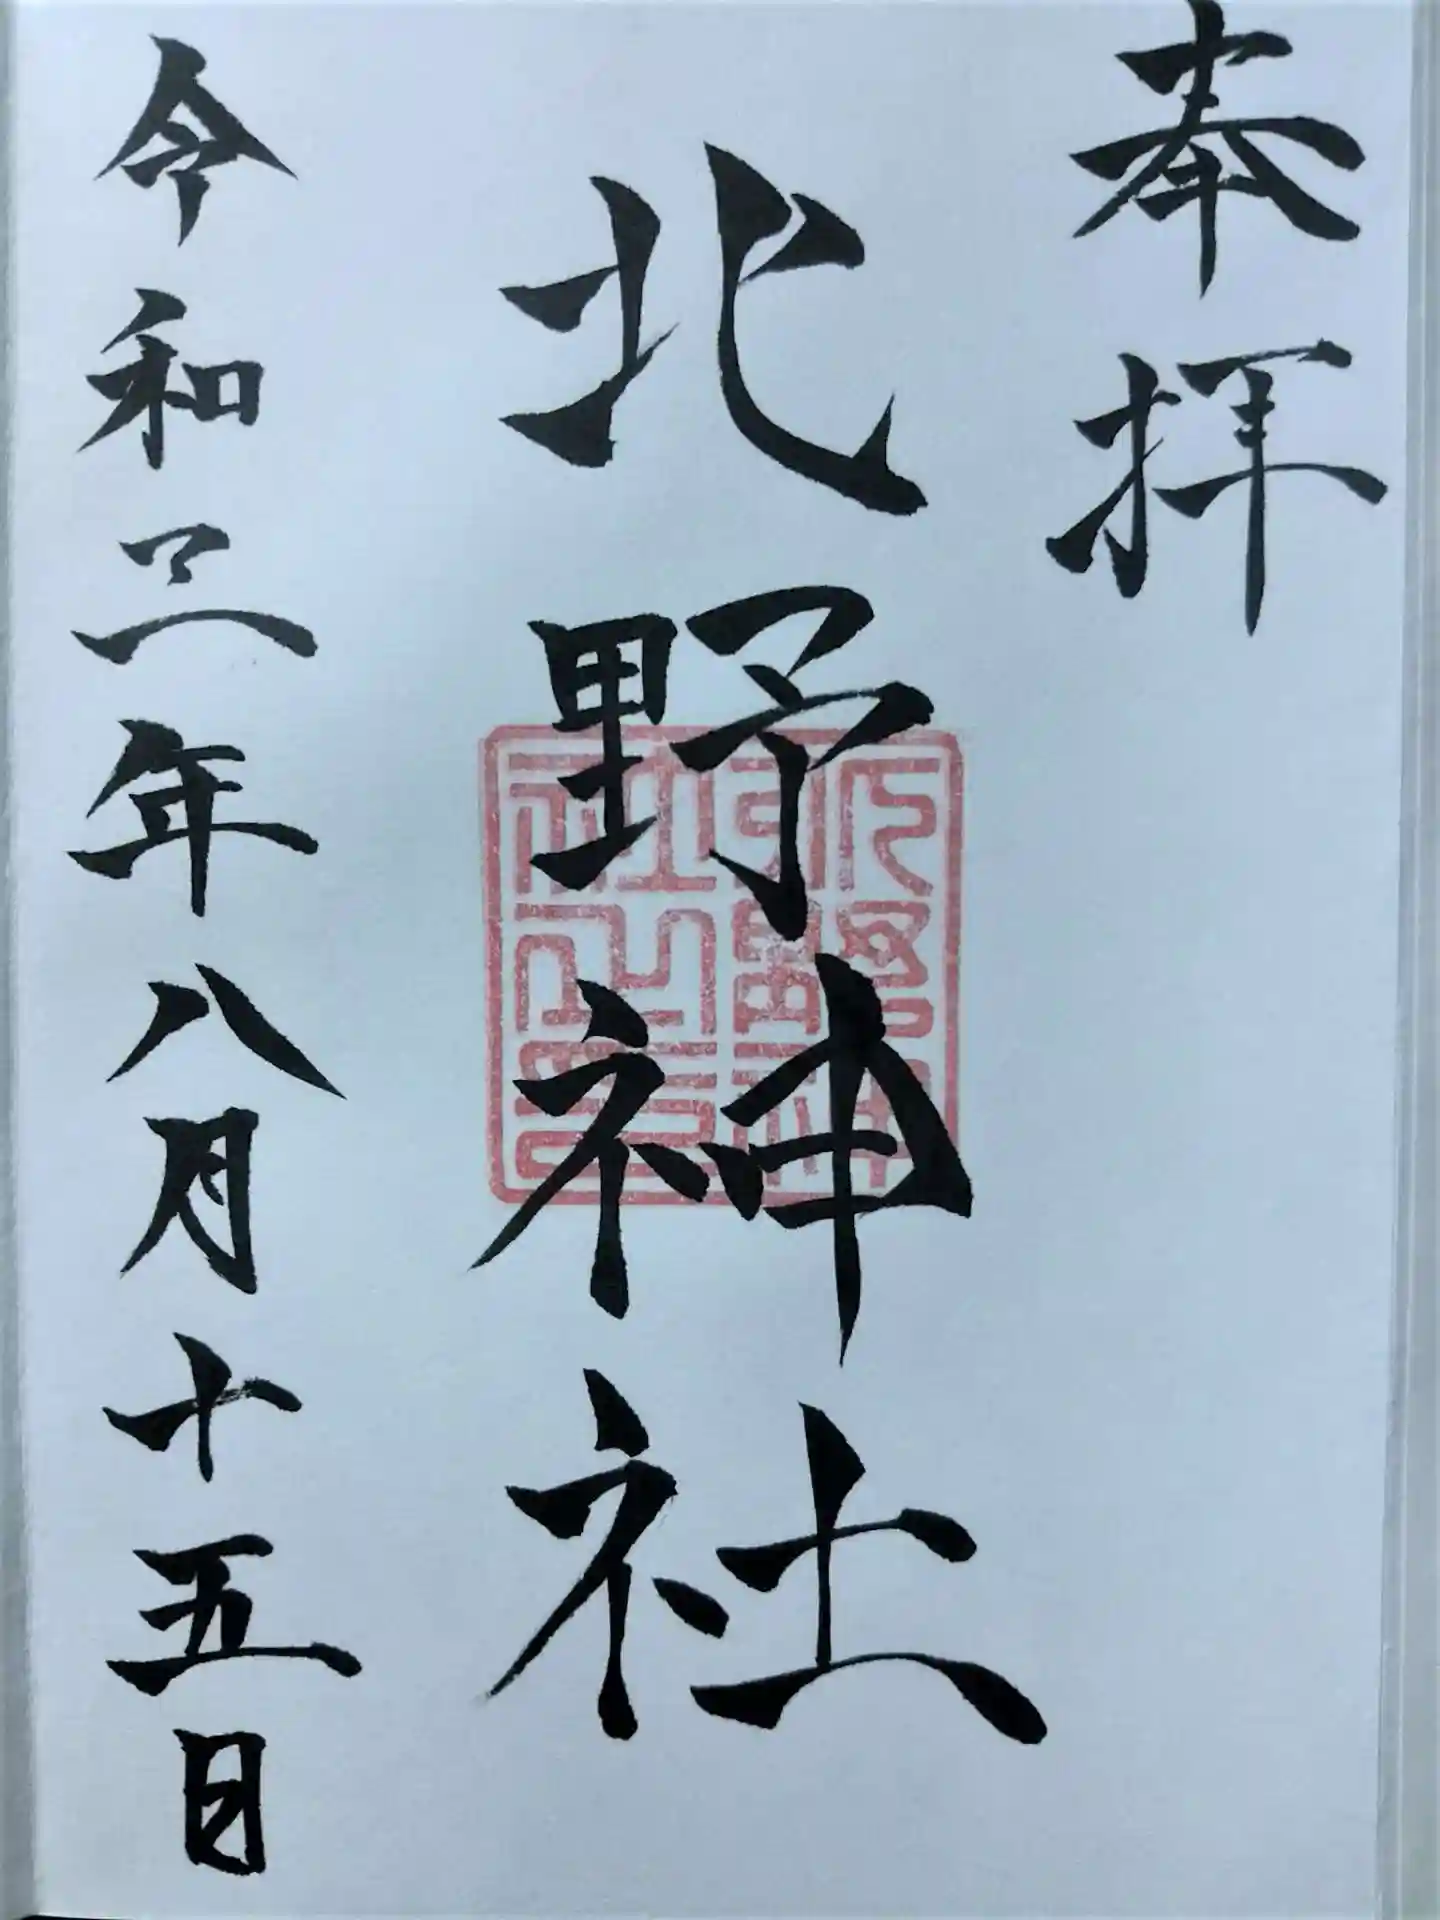 奉拝
北野神社
北野神
社之印
令和三年八月十五日